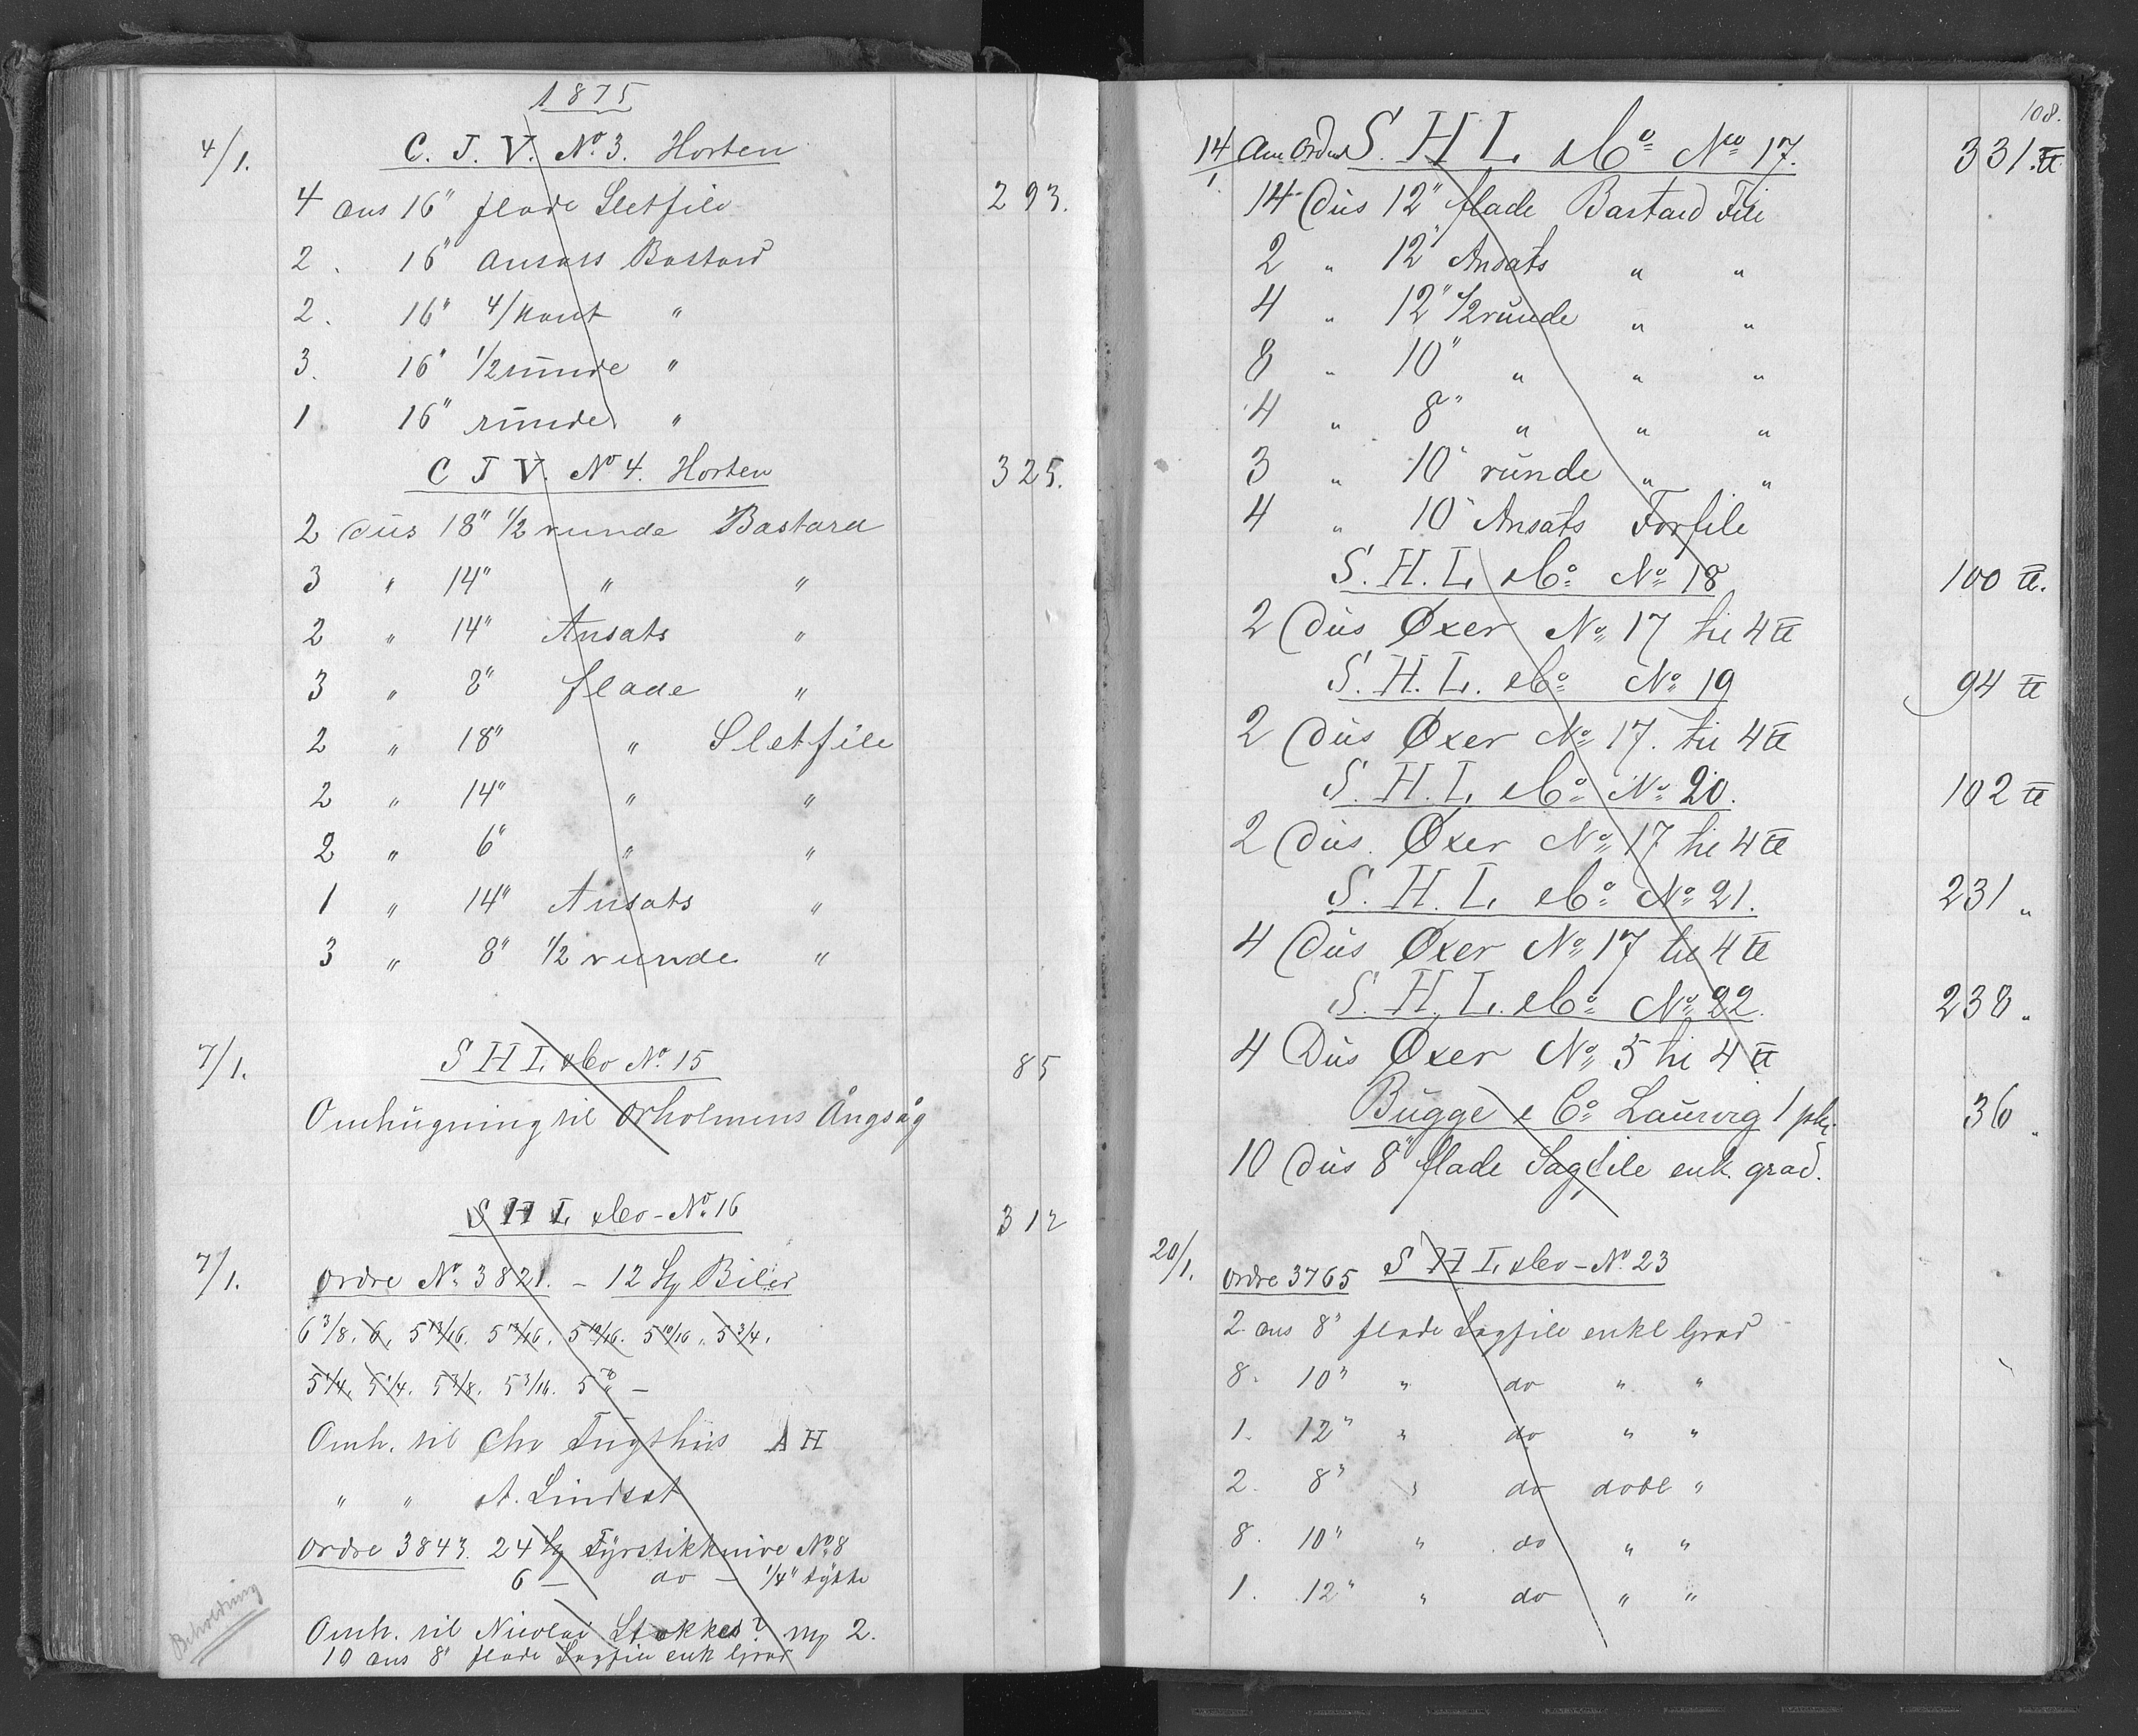 1875
4/1. C. J. V. No. 3. Horten
4 dus 16" flade Sletfile 293.
2 . 16" Ansats Bastard
2 . 16" 4/kant "
3 . 16" 1/2 runde "
1 16" runde "
C J V. No 4. Horten 325.
2 dus 18" 1/2 runde Bastard
3 " 14" " "
2 " 14" Ansats "
3 " 8" flade "
2 " 18" " Sletfile
2 " 14" " "
2 " 6" " "
1 " 14" Ansats "
3 " 8" 1/2 runde "
7/1. S H L & Co No. 15 85
Omhugning til Orholmens Ångsåg
S H L & Co - No. 16 312
7/1. Ordre No. 3821. - 12 St Biler
6 3/8. 6. 5 13/16. 5 13/16. 5 10/16. 5 10/16. 5 3/4.
5 1/4. 5 1/4. 5 3/8. 5 3/16. 5 " -
Omh. til Chr Tugthus A H
" " A. Lindset
Ordre 3843. 24 St Fyrstikknive No. 8
6 - do - 1/4" tykke
Omh. til Nicolai Stokked? 2.
Beholdning
10 dus 8" flade Sagfile enk Grad
108.
14/1 S. H L & Co No 17. 331. ℔
14 Dus 12" flade Bastard File
2 " 12" Ansats " "
4 " 12" 1/2 runde " "
8 " 10" " " "
4 " 8" " " "
3 " 10" runde " "
4 " 10" Ansats Forfile
S. H. L. & Co No 18 100 ℔.
2 Dus Øxer No. 17 til 4 ℔
S. H. L. & Co No 19 94 ℔
2 Dus Øxer No 17. til 4 ℔
S. H. L & Co No 20. 102 ℔
2 Dus. Øxer No. 17 til 4 ℔
S. H. L. & Co No 21. 231 "
4 Dus Øxer No. 17 til 4 ℔
S. H. L. & Co No 22. 238 "
4 Dus Øxer No. 5 til 4 ℔
Bugge & Co Laurvig 1 pk. 36 "
10 Dus 8" flade Sagfile enk. grad.
20/1. Ordre 3765 S H L & Co - No. 23
2 dus 8" flade Sagfile enkl Grad
8 . 10" " do " "
1 . 12" " do " "
2 . 8" " do dobl "
8 . 10" " do " "
1 . 12" " do " "